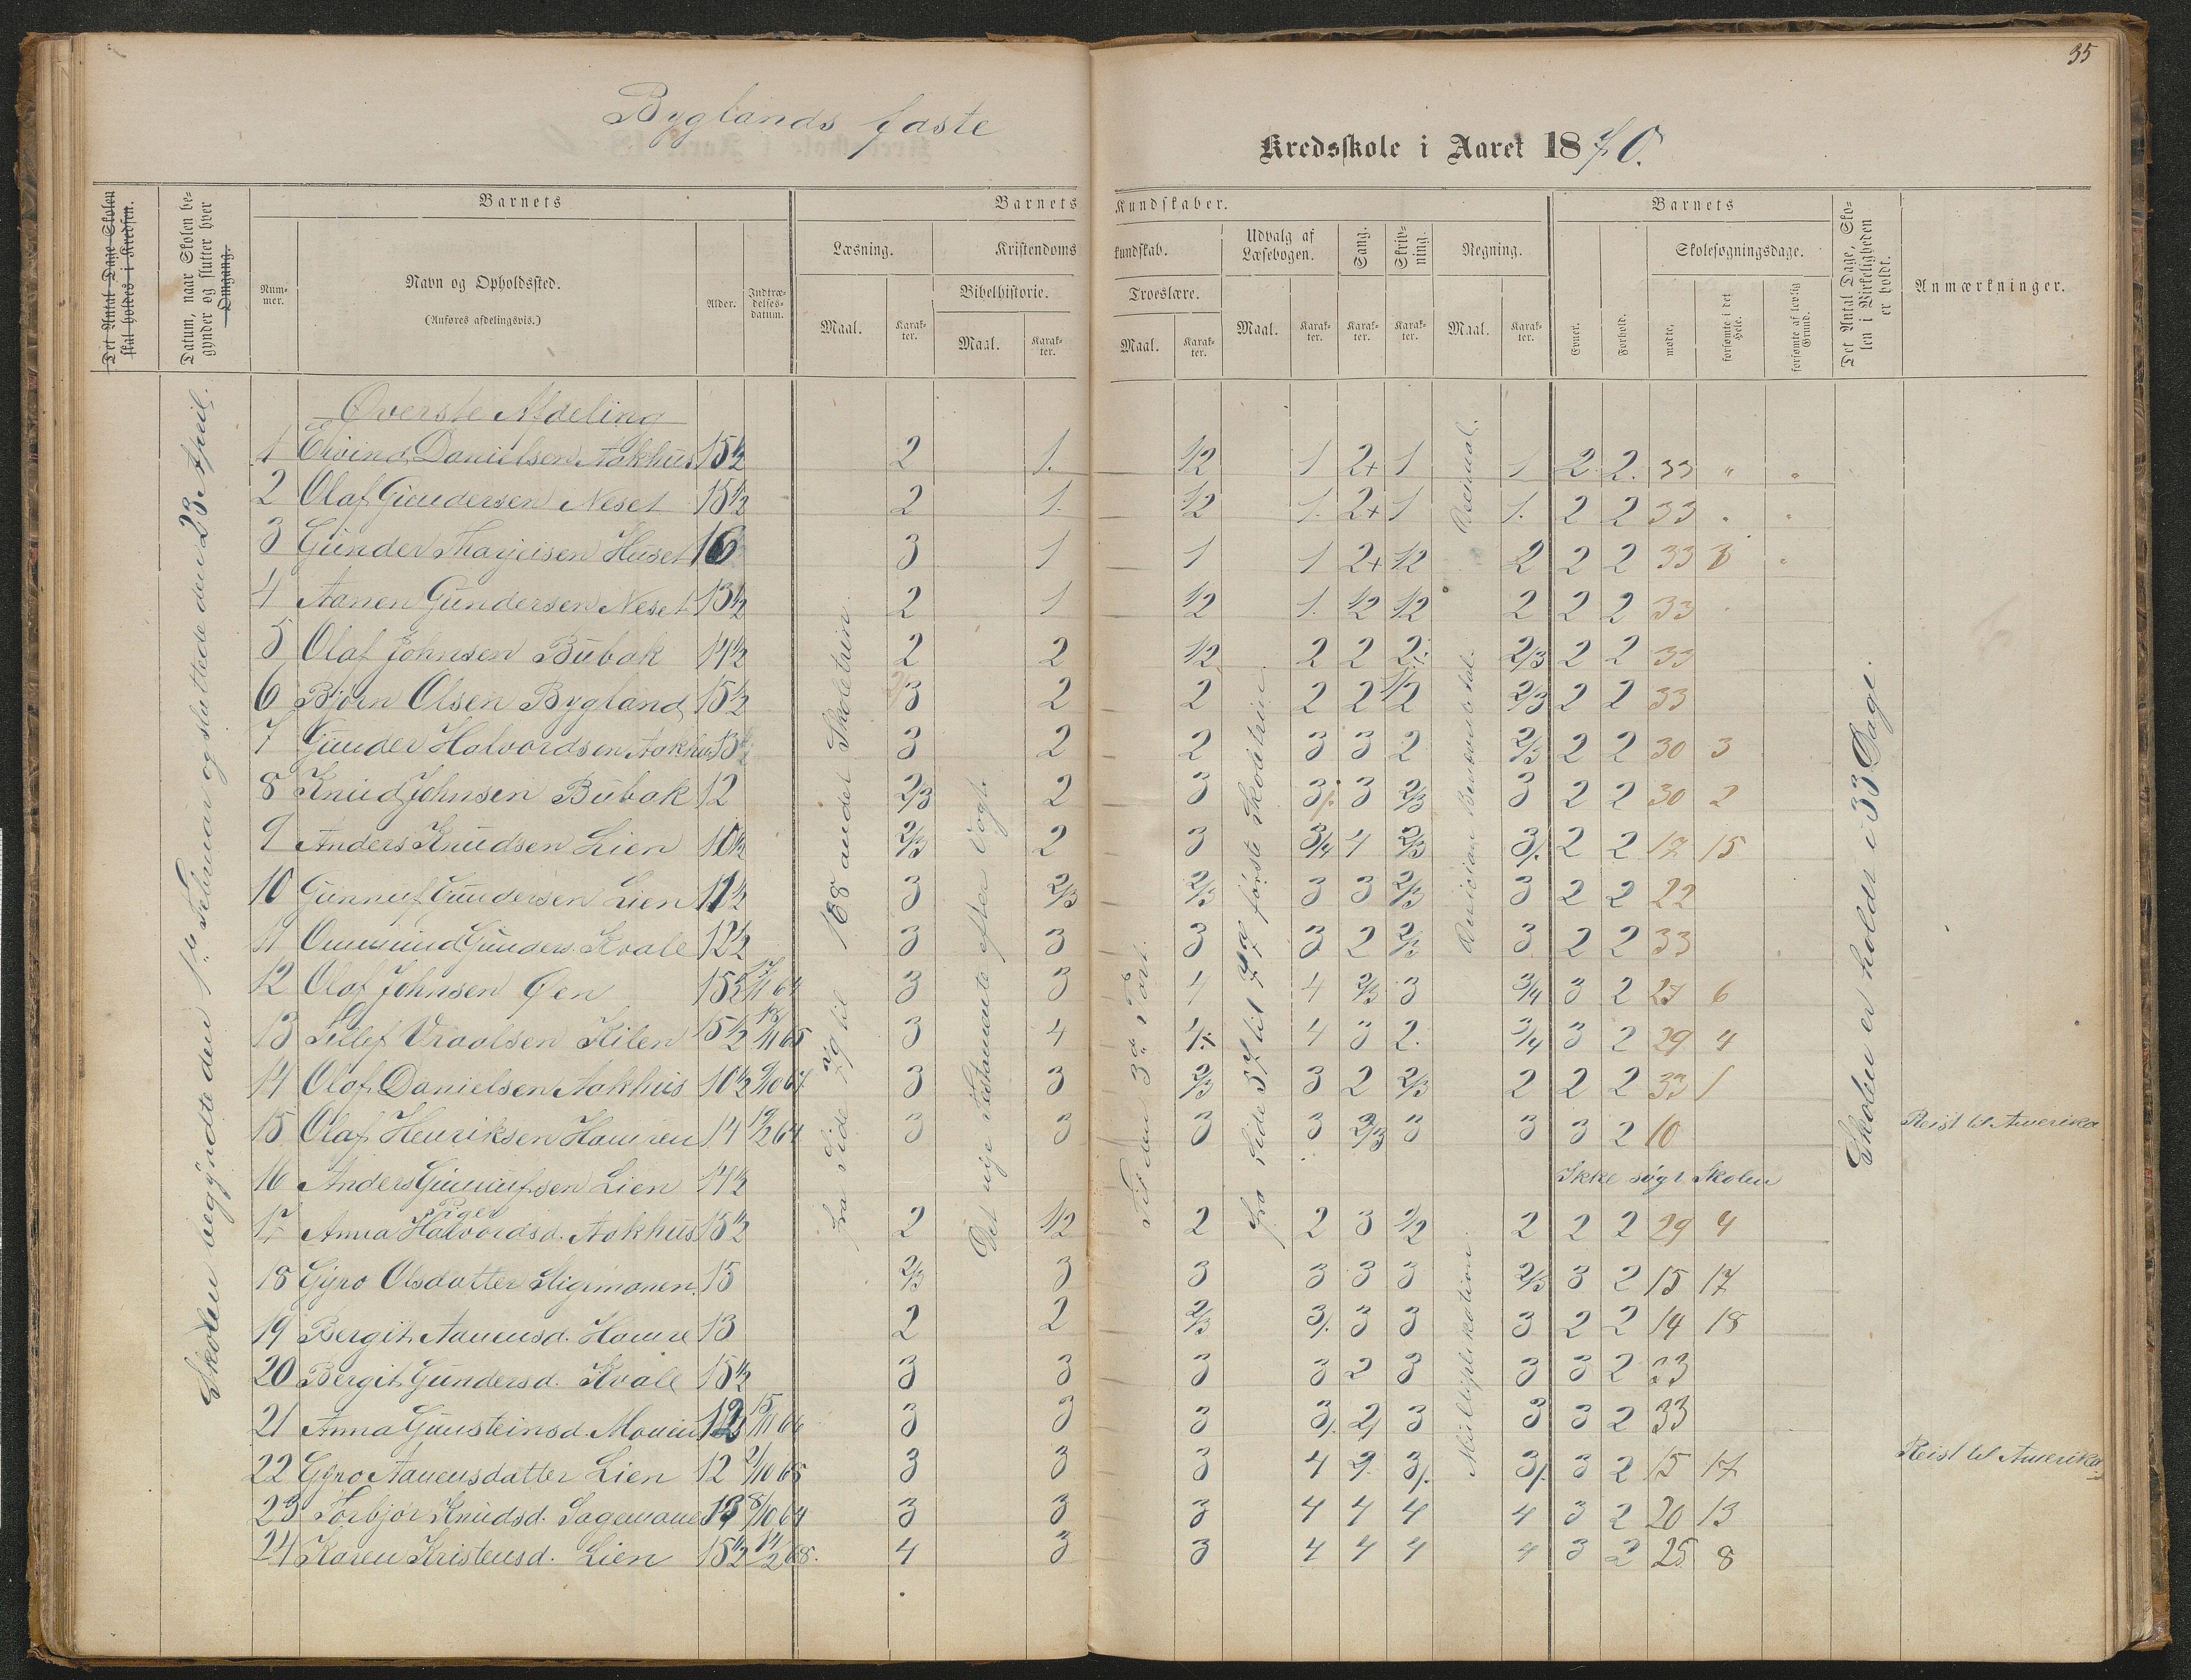 35
Byglands faste Kredsskole i Aaret 1870.
Det Antal Dage Skolen skal holdes i Kredsen.
Datum, naar Skolen begynder og slutter hver Omgang.
Barnets
Nummer.
Navn og Opholdssted.
(Anføres afdelingsvis.)
Alder.
Indtrædelsesdatum.
Barnets Kundskaber.
Læsning.
Maal.
Karakter.
Kristendomskundskab.
Bibelhistorie.
Maal.
Karakter.
Troeslære.
Maal.
Karakter.
Udvalg af Læsebogen.
Maal.
Karakter.
Sang.
Karakter.
Skrivning.
Karakter.
Regning.
Maal.
Karakter.
Barnets
Evner.
Forhold.
Skolesøgningsdage.
mødte.
forsømte i det Hele.
forsømte af lovlig Grund.
Det Antal Dage, Skolen i Virkeligheden er holdt.
Anmærkninger.
Skolen begyndte den 1ste Februar og sluttede den 23 April.
fra Side 79 til 168 andet Skoletrin.
Det nye Testamente efter Vogt.
Til den 3die Part.
fra Side 57 til 779 første Skoletrin.
Decimal.
Multiplikation.
Skolen er holdt i 33 Dage.
Øverste Afdeling
1 Eivind Danielsen Aakhus 15½ 2 1. ½ 1 2+ 1 1 2 2. 33 " "
2 Olaf Gundersen Neset 15½ 2 1. ½ 1. 2+ 1 1. 2 2 33 " "
3 Gunder Tharjeisen Huset 16 3 1 1 1 2+ ½ 2 2 2 33 "
4 Aanen Gundersen Neset 13½ 2 1 ½ 1. ½ ½ 2 2 2 33
5 Olaf Johnsen Bubak 14½ 2 2 ½ 2 2 2 2/3 2 2 33
6 Bjørn Olsen Bygland 15½ 2/3 2 2 2 2 ½ 2/3 2 2 33
7 Gunder Halvordsen Aakhus 13½ 3 2 2 3 3 2 2/3 2 2 30 3
8 Knud Johnsen Bubak 12 2/3 2 3 3/. 3 2/3 3 2 2 30 2
9 Anders Knudsen Lien 10½ 2/3 2 3 3/4 4 2/3 3/. 2 2 17 15
10 Gunnuf Gundersen Lien 11½ 3 2/3 2/3 3 3 2/3 3 2 2 22
11 Ommund Gunders. Kvale 12½ 3 3 3 3 2 2/3 3 2 2 33
12 Olaf Johnsen Øen 15½ 17/11 64 3 3 4 4 2/3 3 3/4 3 2 27 6
13 Tellef Vraalsen Kilen 15½ 18/11 65 3 4 4 4 3 2. 3/4 3 2 29 4
14 Olaf Danielsen Aakhus 10½ 9/10 67 3 3 2/3 3 2 2/3 2 2 2 33 1
15 Olaf Henriksen Hamren 14 19/2 64 3 3 3 3 2/3 3 3 3 2 10 Reist til Amerika
16 Anders Gunnufsen Lien 14½ Ikke søgt Skolen
Piger
17 Anna Halvordsd. Aakhus 15½ 2 ½ 2 2 3 ½ 2 2 2 29 4
18 Gyro Olsdatter Stigemonen 15 2/3 3 3 3 3 3 2/3 3 2 15 17
19 Bergit Aanensd. Hamre 13 2 2 2/3 3/. 3 3 3 2 2 14 18
20 Bergit Gundersd. Kvale 15½ 3 3 3 3 2 3 3 3 2 33
21 Anna Gunsteinsd. 12 15/11 66 3 3 3 3/. 2/ 3 3 3 2 33
22 Gyro Aanensdatter Lien 12 2/10 65 3 3 3 4 2. 3/. 3/. 3 2 15 17 Reist til Amerika
23 Torbjør Knudsd. Sagemonen 13 8/10 64 3 3 3 4 4 4 4 3 2 20 13
24 Karen Kristensd. Lien 15½ 14/2 68. 4 3 3 4 4 4 4 3 2 25 8